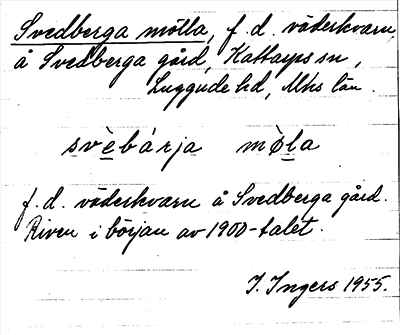 Svedberga mölla, f.d. väderkvarn,
å Svedberga gård, Kattarps sn,
Luggude hd, Mhs län.
svèbárja mǿla
f.d. väderkvarn å Svedberga gård.
Riven i början av 1900-talet.
I. Ingers 1955.